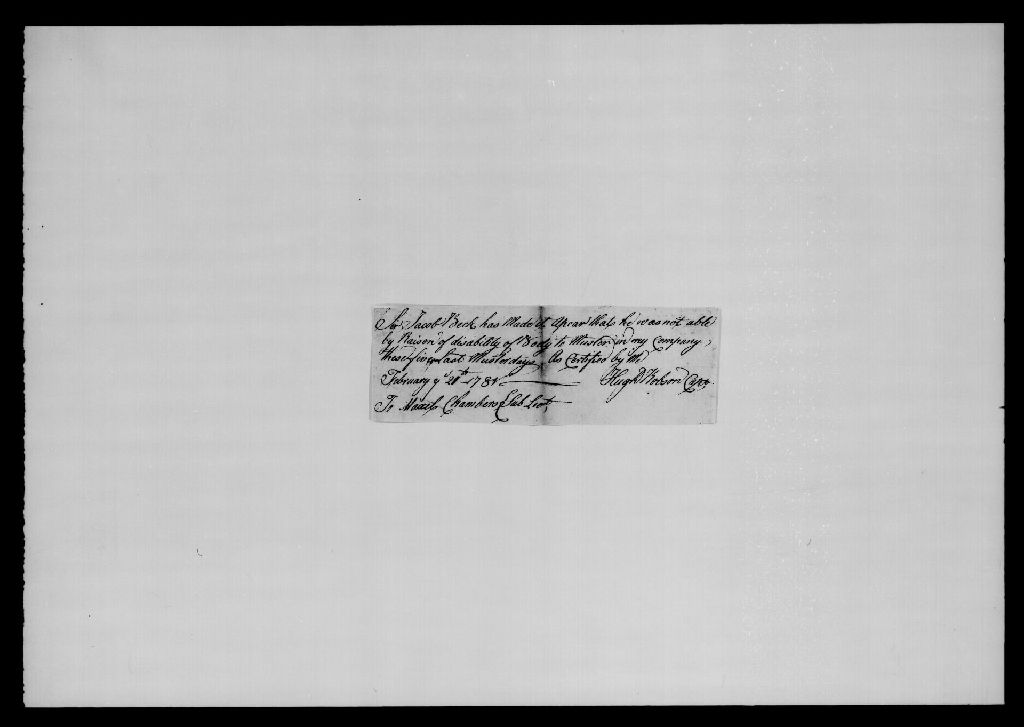 Sir Jacob Beck has Made it Apear that he was not able
by Raison of disability of Body to Muster in my Company
these five Last Muster days As Certified by Me
February ye 20th 1781 Hugh Capt
To Chambers Sub Lieut